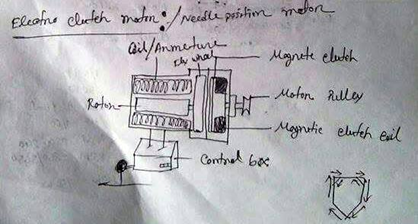 Electro clutch motor:/Needle position motor
Coil/Armeture
Fly wheel
Magnete clutch
Rotor
Motor Pulley
Magnetic clutch coil
Control box